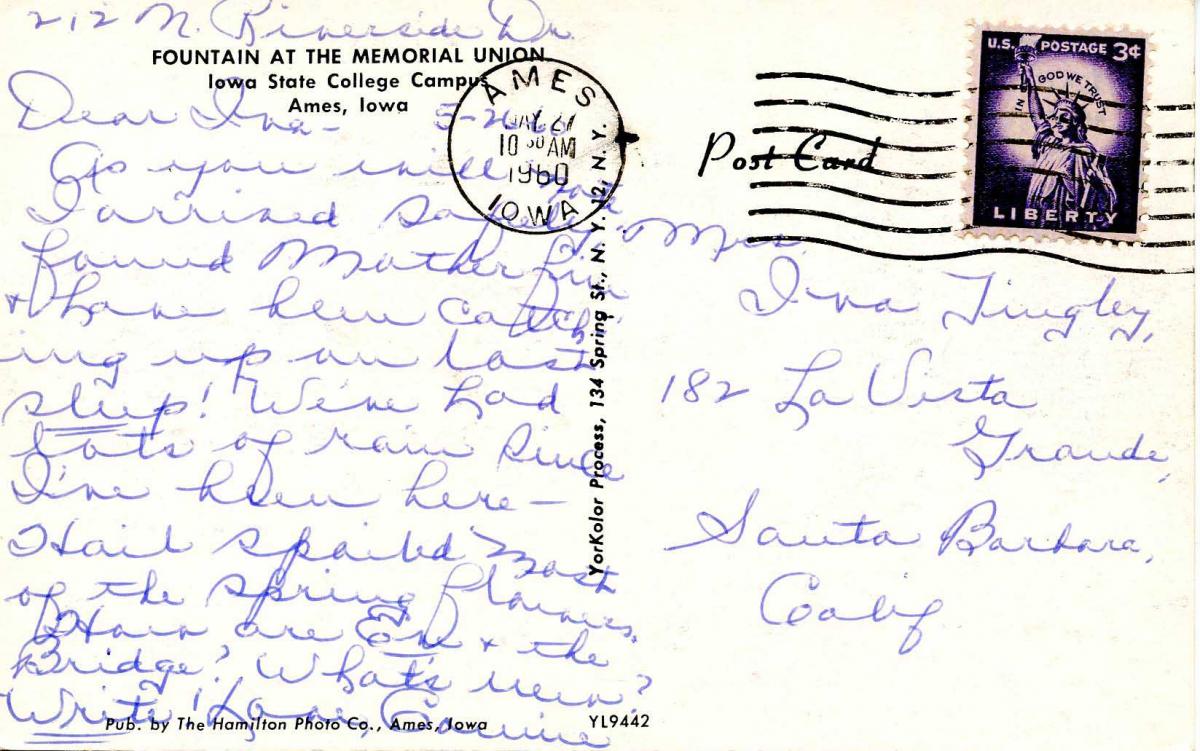 212 N. Riverside Dr.
FOUNTAIN AT THE MEMORIAL UNION
Iowa State College Campus
Ames, Iowa
Dear Ina -
As you will
I arrived safely
found Mother fine
& have been catch
ing up on lost
sleep! We've had
lots of rain since
I've been here -
Hail spoiled most
of the spring flowers.
How are & the
Bridge? What's new?
Write! Love,
Pub. by The Hamilton Photo Co., Ames, Iowa
YL9442
YorKolor Process, 134 Spring St., N. Y. 12, N. Y.
AMES
10 30 AM
1960
IOWA
Post Card
U.S. POSTAGE 3¢
IN GOD WE TRUST
LIBERTY
Mrs.
Ina Tingley,
182 La Vista
Grande,
Santa Barbara,
Calif